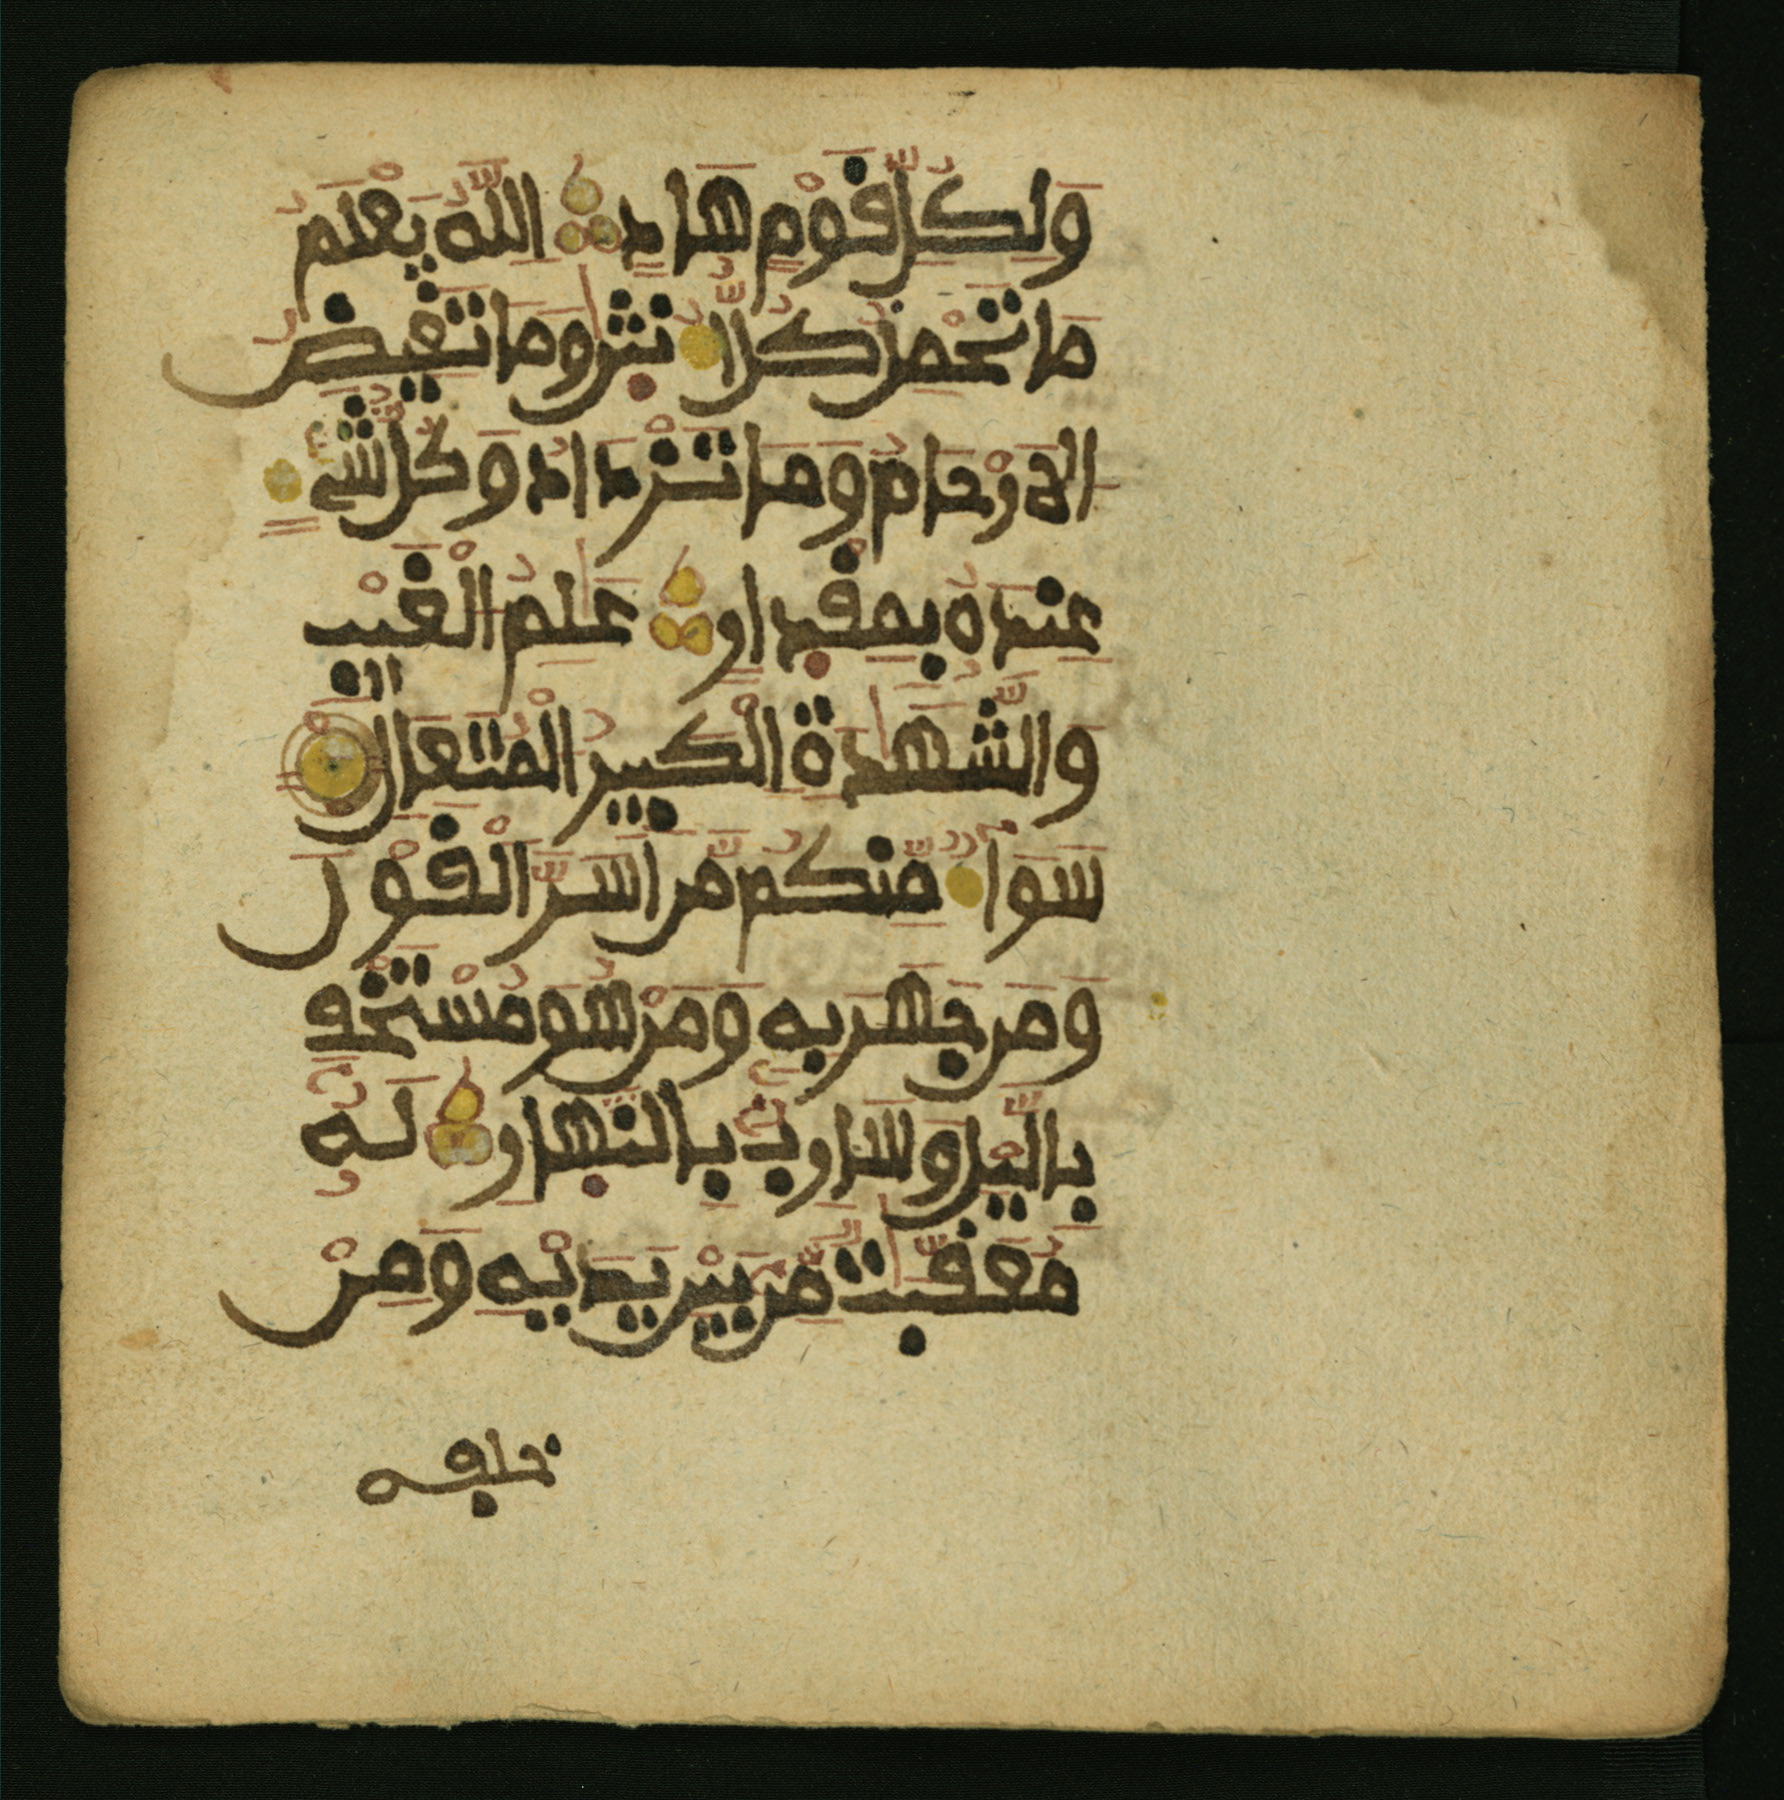 وَلِكُلِّ قَوْمٍ هَادٍ اللَّهُ يَعْلَمُ
مَا تَحْمِلُ كُلُّ انثىٰ وَمَا تَغِيضُ
الَارْحَامُ وَمَا تَزْدَادُ وَكُلُّ شَےْءٍ
عِندَهُ بِمِقْدِارٍ عَٰلِمُ الْغَيْبِ
وَالشَّهَٰدَةِ الْكَبِيرُ الْمُتَعَالِ
سَوَآءٌ مِّنكُم مَّنَ اسَرَّ الْقَوْلَ
وَمَن جَهَرَ بِهِ وَمَنْ هُوَ مُسْتَخْفٍ
بِالَّيْلِ وَسَارِبٌ بِالنَّهِارِ لَهُ
مُعَقِّبَٰتٌ مِّنۢ بَيْنِ يَدَيْهِ وَمِنْ
خلفه